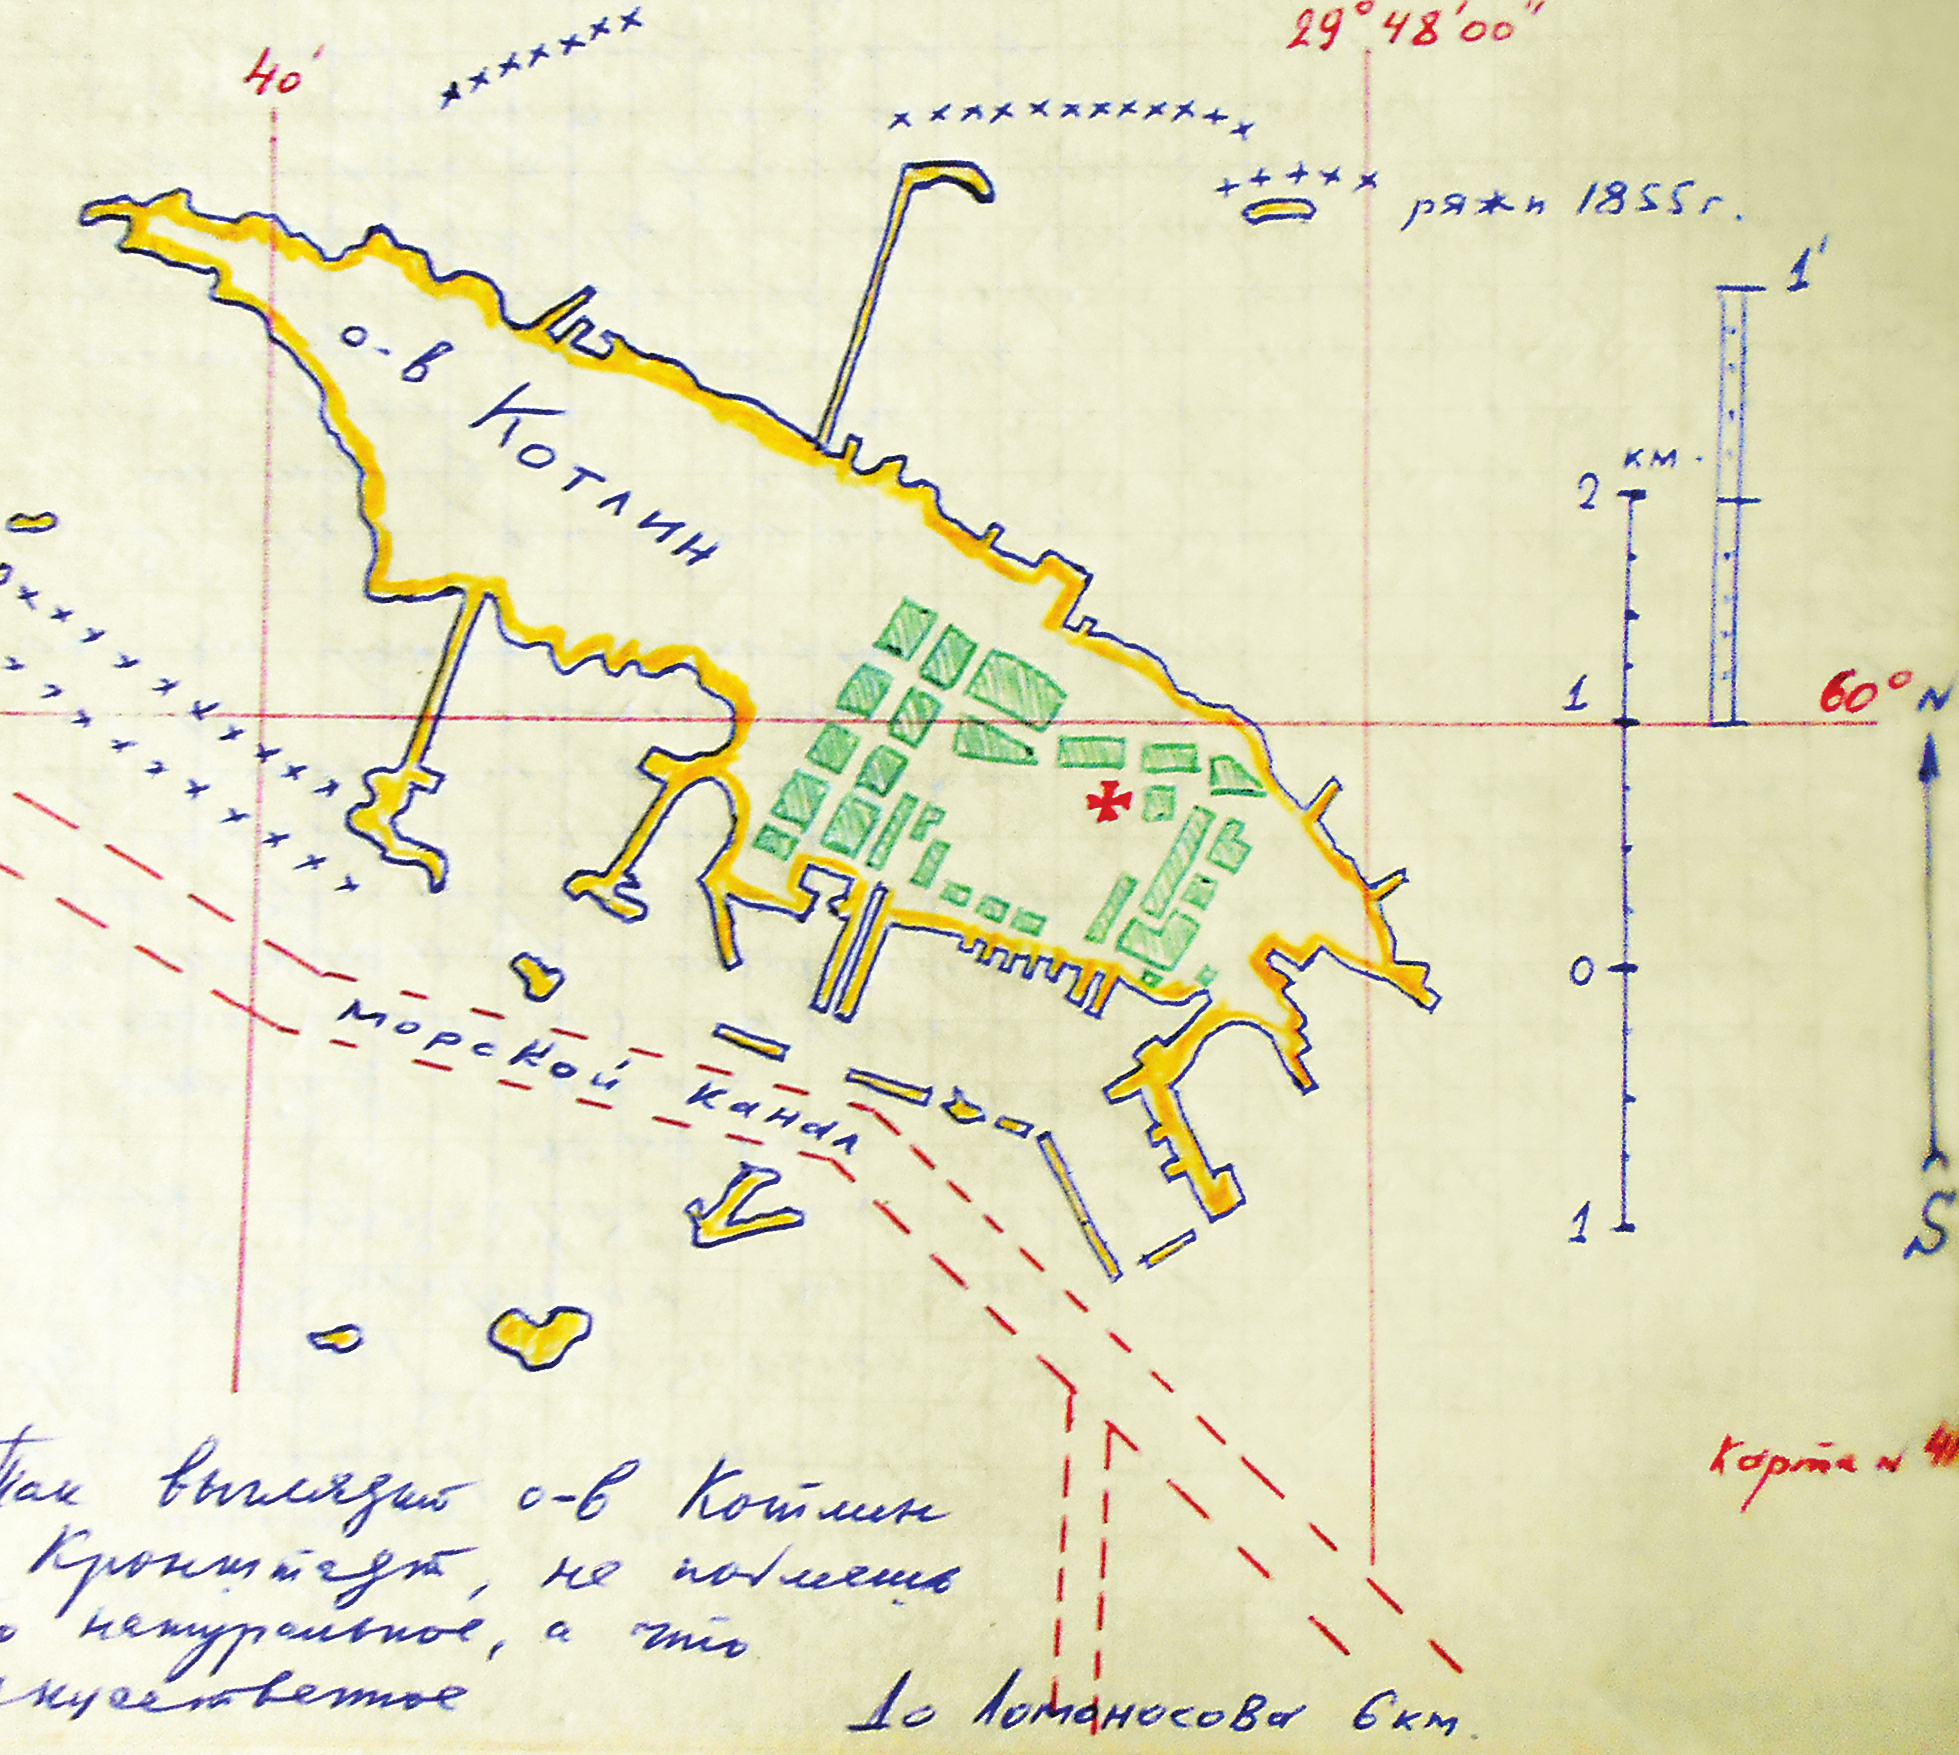 40'
29° 48' 00"
ряжи 1855г.
1'
о-в Котлин
км.
2
1
60° N
0
Морской канал
1
S
Карта №
Так выглядит о-в Котлин
Кронштадт, не поймешь
натуральное, а что
До Ломоносова 6 км.